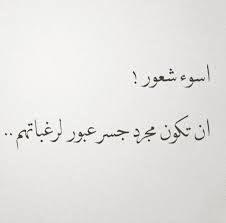 اسوء شعور !
ان تكون مجرد جسر عبور لرغباتهم ..